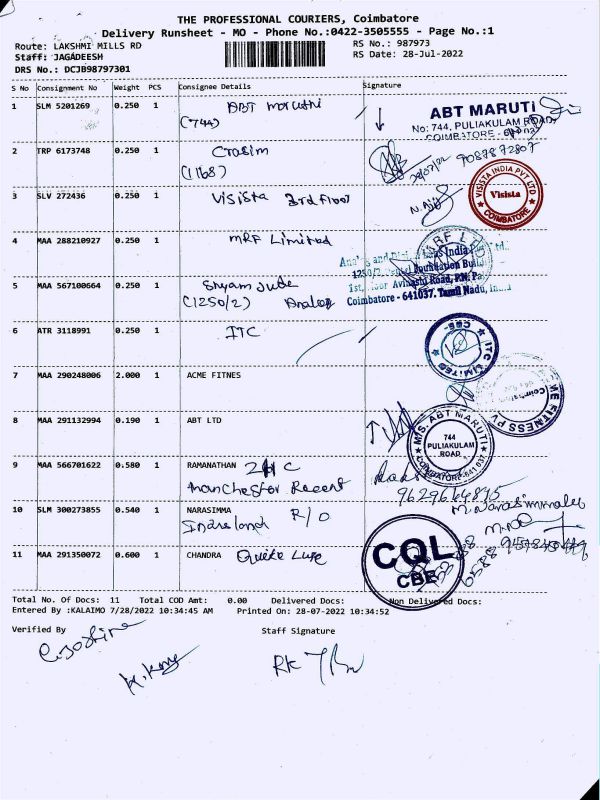 THE PROFESSIONAL COURIERS, Coimbatore
Delivery Runsheet - MO - Phone No.:0422-3505555 - Page No.:1
Route: LAKSHMI MILLS RD RS No.: 987973
Staff: JAGADEESH RS Date: 28-Jul-2022
DRS No.: DCJB98797301
S No Consignment No Weight PCS Consignee Details Signature
1 SLM 5201269 0.250 1 ABT Maruthi
(744)
ABT MARUTI
No: 744, PULIAKULAM ROAD,
COIMBATORE -
2 TRP 6173748 0.250 1 Crasim
(1168)
28/07/22 9087872807
3 SLV 272436 0.250 1 Visista 3rd Floor
VISISTA INDIA PVT LTD
Visista
COIMBATORE
4 MAA 288210927 0.250 1 MRF Limited
5 MAA 567100664 0.250 1 Shyam Jude
(1250/2) Analog
1st, Floor Avinashi Road, P.N.
Coimbatore - 641037. Tamil Nadu,
6 ATR 3118991 0.250 1 ITC
ITC LIMITED CBE
7 MAA 290248006 2.000 1 ACME FITNES
FITNESS
8 MAA 291132994 0.190 1 ABT LTD
M/S. ABT MARUTI
744
PULIAKULAM
ROAD
COIMBATORE-641 037
9 MAA 566701622 0.580 1 RAMANATHAN 2H C
Manchester Recent
9629664895
10 SLM 300273855 0.540 1 NARASIMMA R/O
M. Narasimmalu
11 MAA 291350072 0.600 1 CHANDRA
CQL
CBE
Total No. Of Docs: 11 Total COD Amt: 0.00 Delivered Docs: Non Delivered Docs:
Entered By :KALAIMO 7/28/2022 10:34:45 AM Printed On: 28-07-2022 10:34:52
Verified By Staff Signature